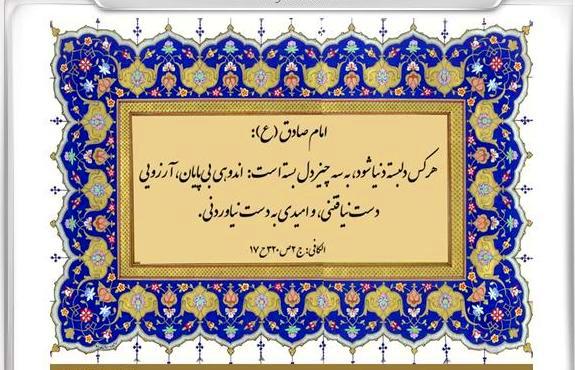 امام صادق (ع):
هرکس دلبسته دنیا شود، به سه چیز دل بسته است: اندوهی بی پایان، آرزویی
دست نیافتنی، و امیدی به دست نیاوردنی.
الکافی: ج ۲ ص ۳۲۰ ح ۱۷